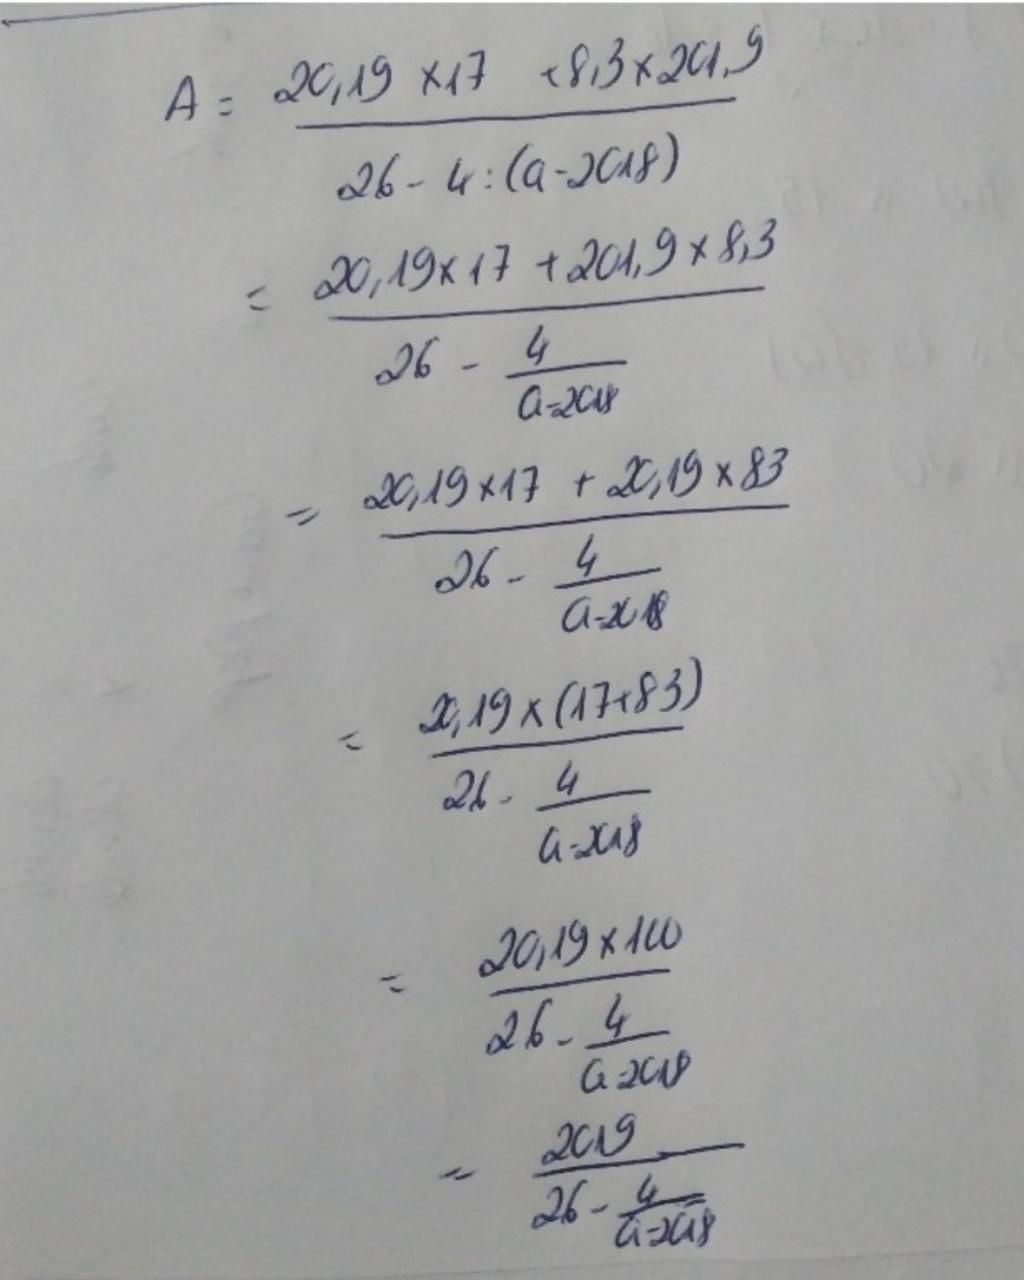 A = 20,19 × 17 + 8,3 × 201,9
26 - 4 : (a - 2018)
= 20,19 × 17 + 201,9 × 8,3
26 - 4
a - 2018
= 20,19 × 17 + 20,19 × 83
26 - 4
a - 2018
= 20,19 × (17 + 83)
26 - 4
a - 2018
= 20,19 × 100
26 - 4
a - 2018
= 2019
26 - 4
a - 2018